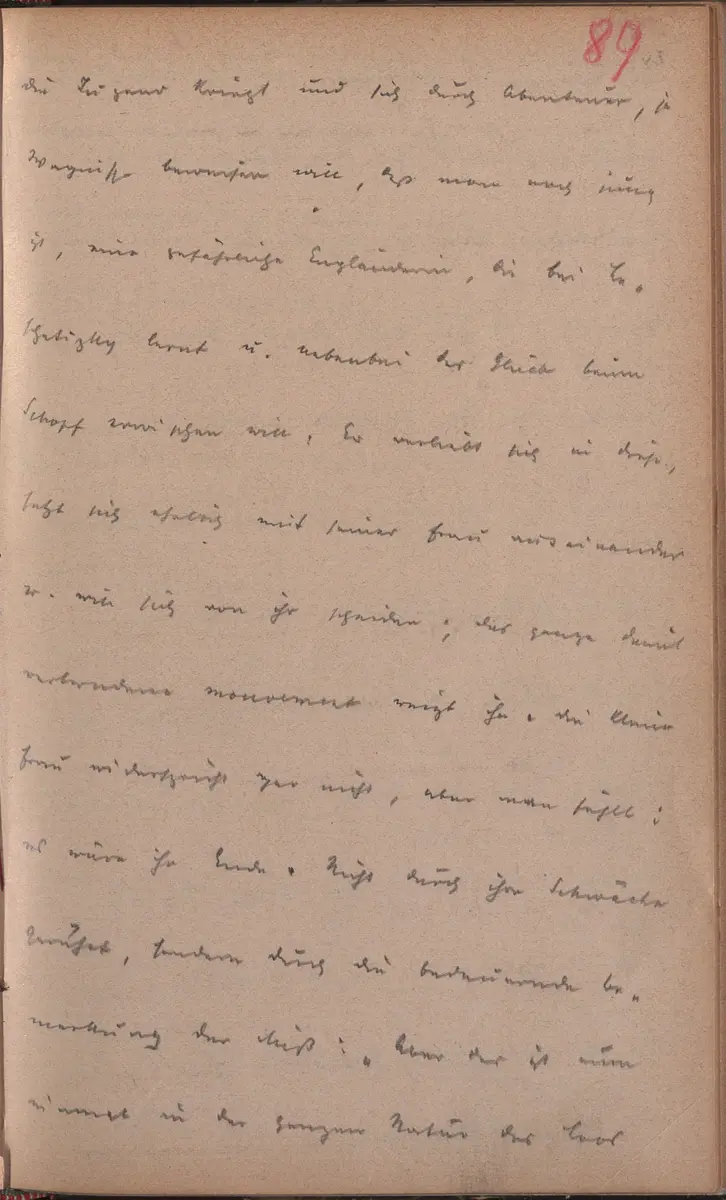 89
die Jugend kriegt und sich durch Abenteuer, ja
Wagnisse beweisen will, daß man noch jung
ist, eine gefährliche Engländerin, die bei Le„
schetizky lernt u. nebenbei das Glück beim
Schopf erwischen will. Er verliebt sich in diese,
setzt sich ehelich mit seiner Frau auseinander
u. will sich von ihr scheiden; das ganze damit
verbundene mouvement reizt ihn. Die kleine
Frau widerspricht gar nicht, aber man fühlt:
es wäre ihr Ende. Nicht durch ihre Schwäche
gerührt, sondern durch die bedauernde Be„
merkung der Miß: „Aber das ist nun
einmal in der ganzen Natur das Loos